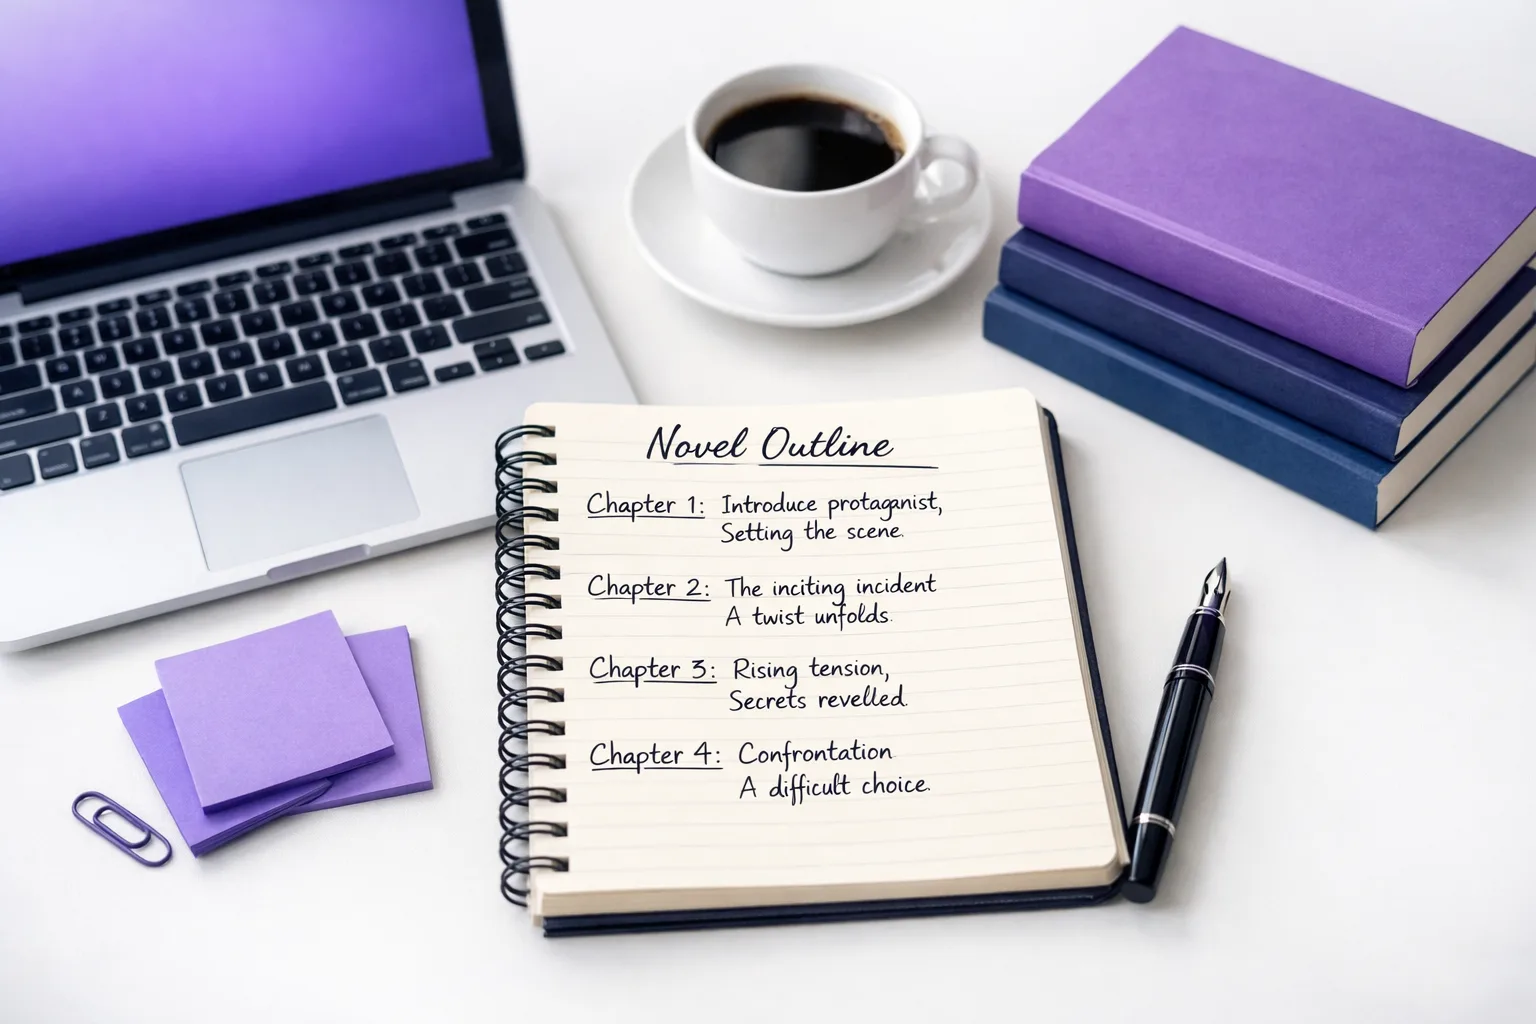 Novel Outline
Chapter 1: Introduce protaganist,
Setting the scene.
Chapter 2: The inciting incident
A twist unfolds.
Chapter 3: Rising tension,
Secrets revelled.
Chapter 4: Confrontation
A difficult choice.